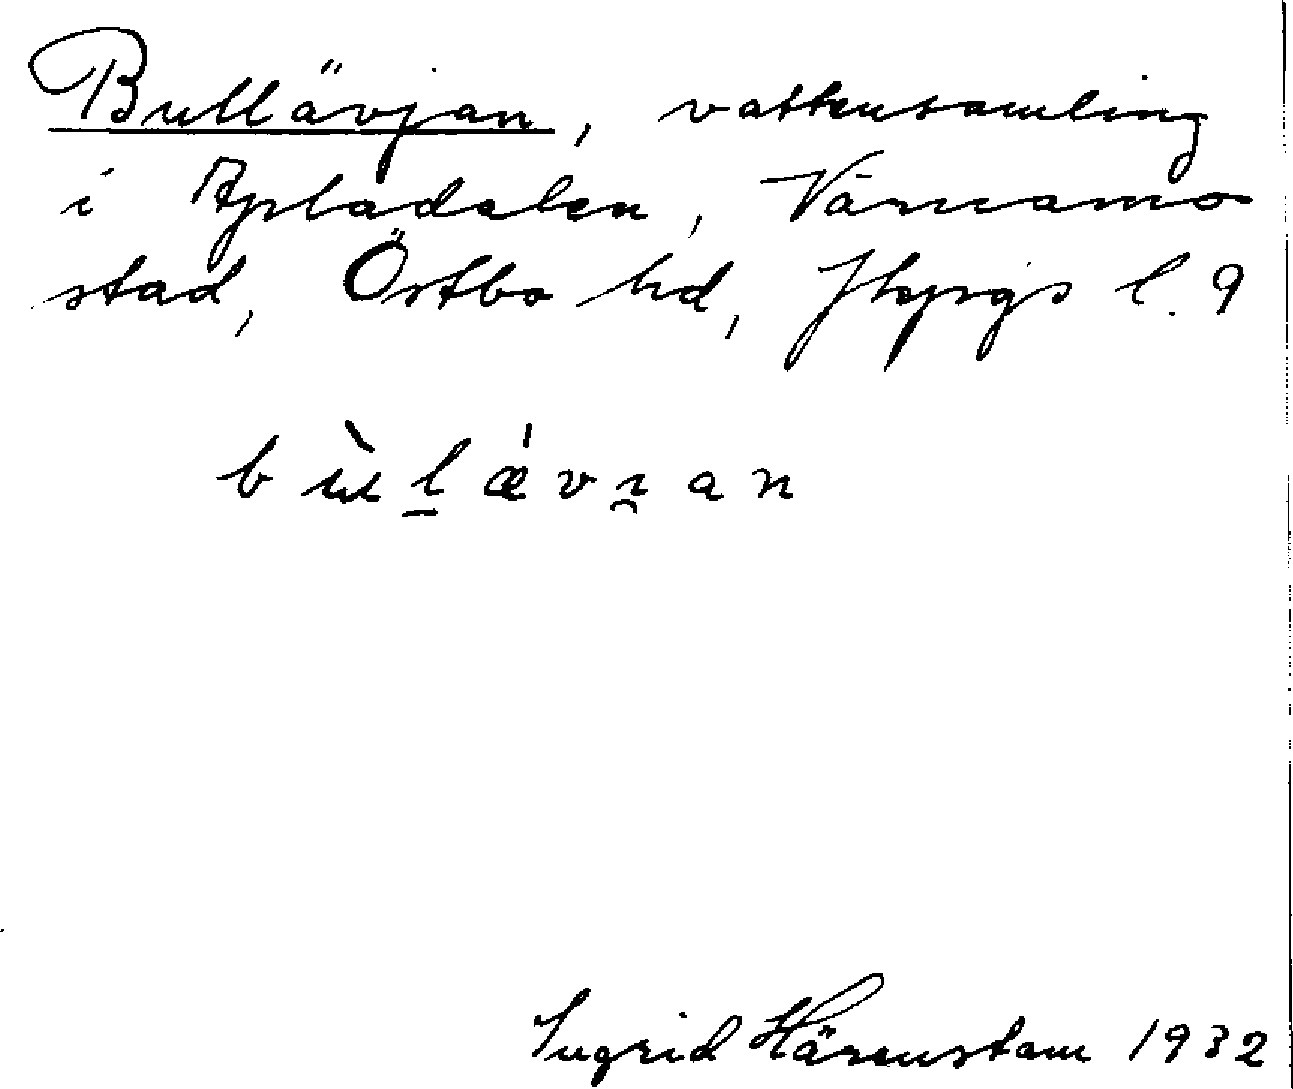 Bullävjan, vattensamling
i Apladalen, Värnamo
stad, Östbo hd, Jkpgs l. 9
bùl̠ǽvı̯an
Ingrid Härenstam 1932